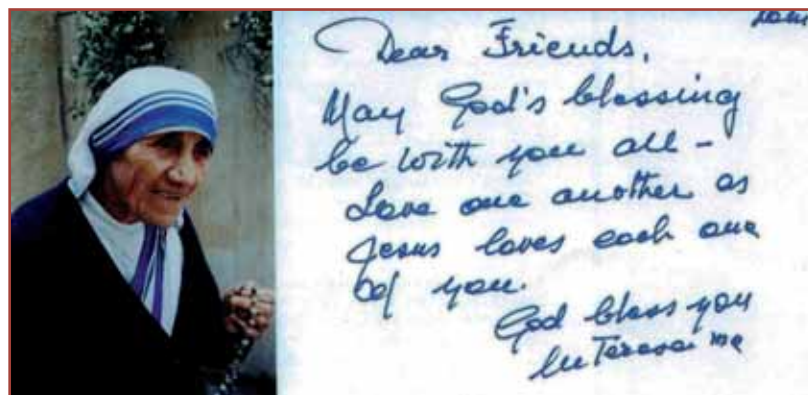 Dear Friends,
May God's blessing
be with you all -
Love one another as
Jesus loves each one
of you.
God bless you
M Teresa mc